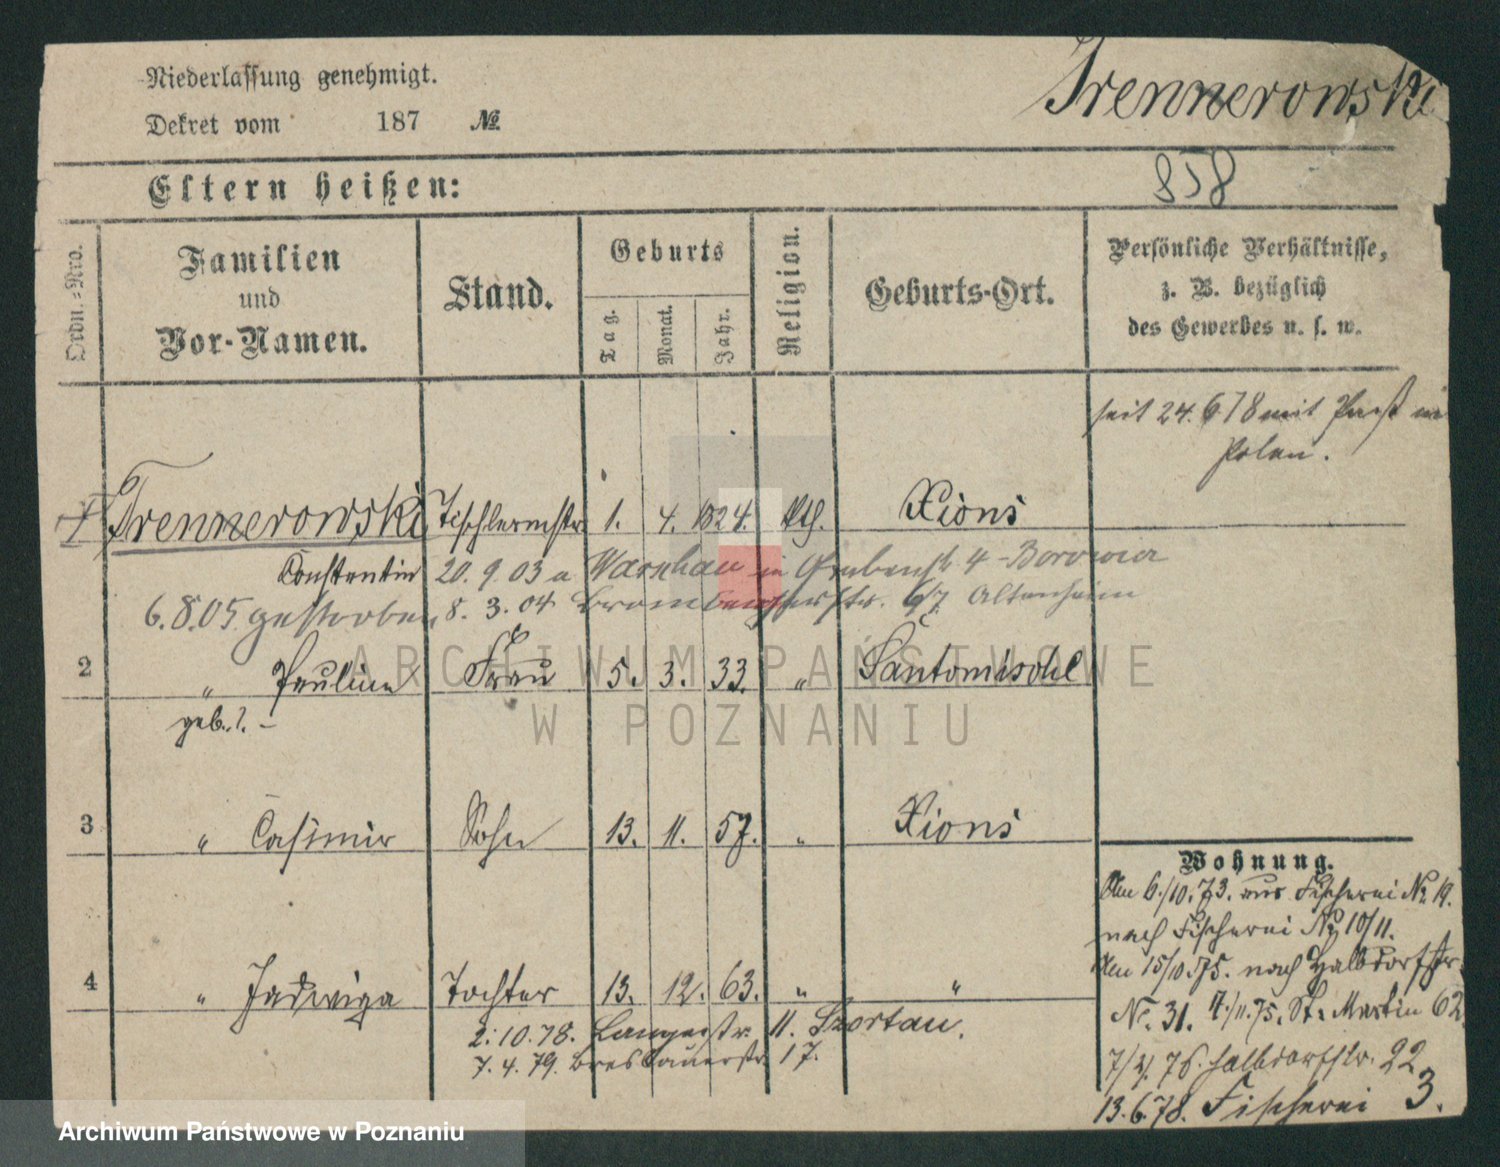 Niederlassung genehmigt.
Trennerowski
Dekret vom 187 №
858
Eltern heißen:
Ordn.-Nro.
Familien und Vor-Namen.
Stand.
Geburts
Tag.
Monat.
Jahr.
Religion.
Geburts-Ort.
Persönliche Verhältnisse,
z. B. bezüglich
des Gewerbes u. s. w.
seit 24. 6 78 mit Paß in
Polen.
Trennerowski Tischlermstr. 1. 4. 1824. kth. Xions
Constantin 20. 9. 03 a Warschau in Grabenstr 4 - Borowicz
6.8.05 gestorben, 8. 3. 04 Brombergerstr. Altenheim
2 " Pauline Frau 5. 3. 33. " Santomischl
geb. ? -
3 " Casimir Sohn 13. 11. 57. " Xions
Wohnung.
Den 6./10. 73. aus Fischerei No 19.
nach Fischerei No 10/11.
Den 15/10 75. nach Halbdorfstr.
4 " Jadwiga Tochter 13. 12. 63. " "
No. 31. 4./11. 75. St. Martin 62
2. 10. 78. Langestr. 11. Szortau.
7. 4. 79. Breslauerstr. 17.
7/4. 76. Halbdorfstr. 22
13. 6. 78. Fischerei 3.
ARCHIWUM PAŃSTWOWE
W POZNANIU
Archiwum Państwowe w Poznaniu